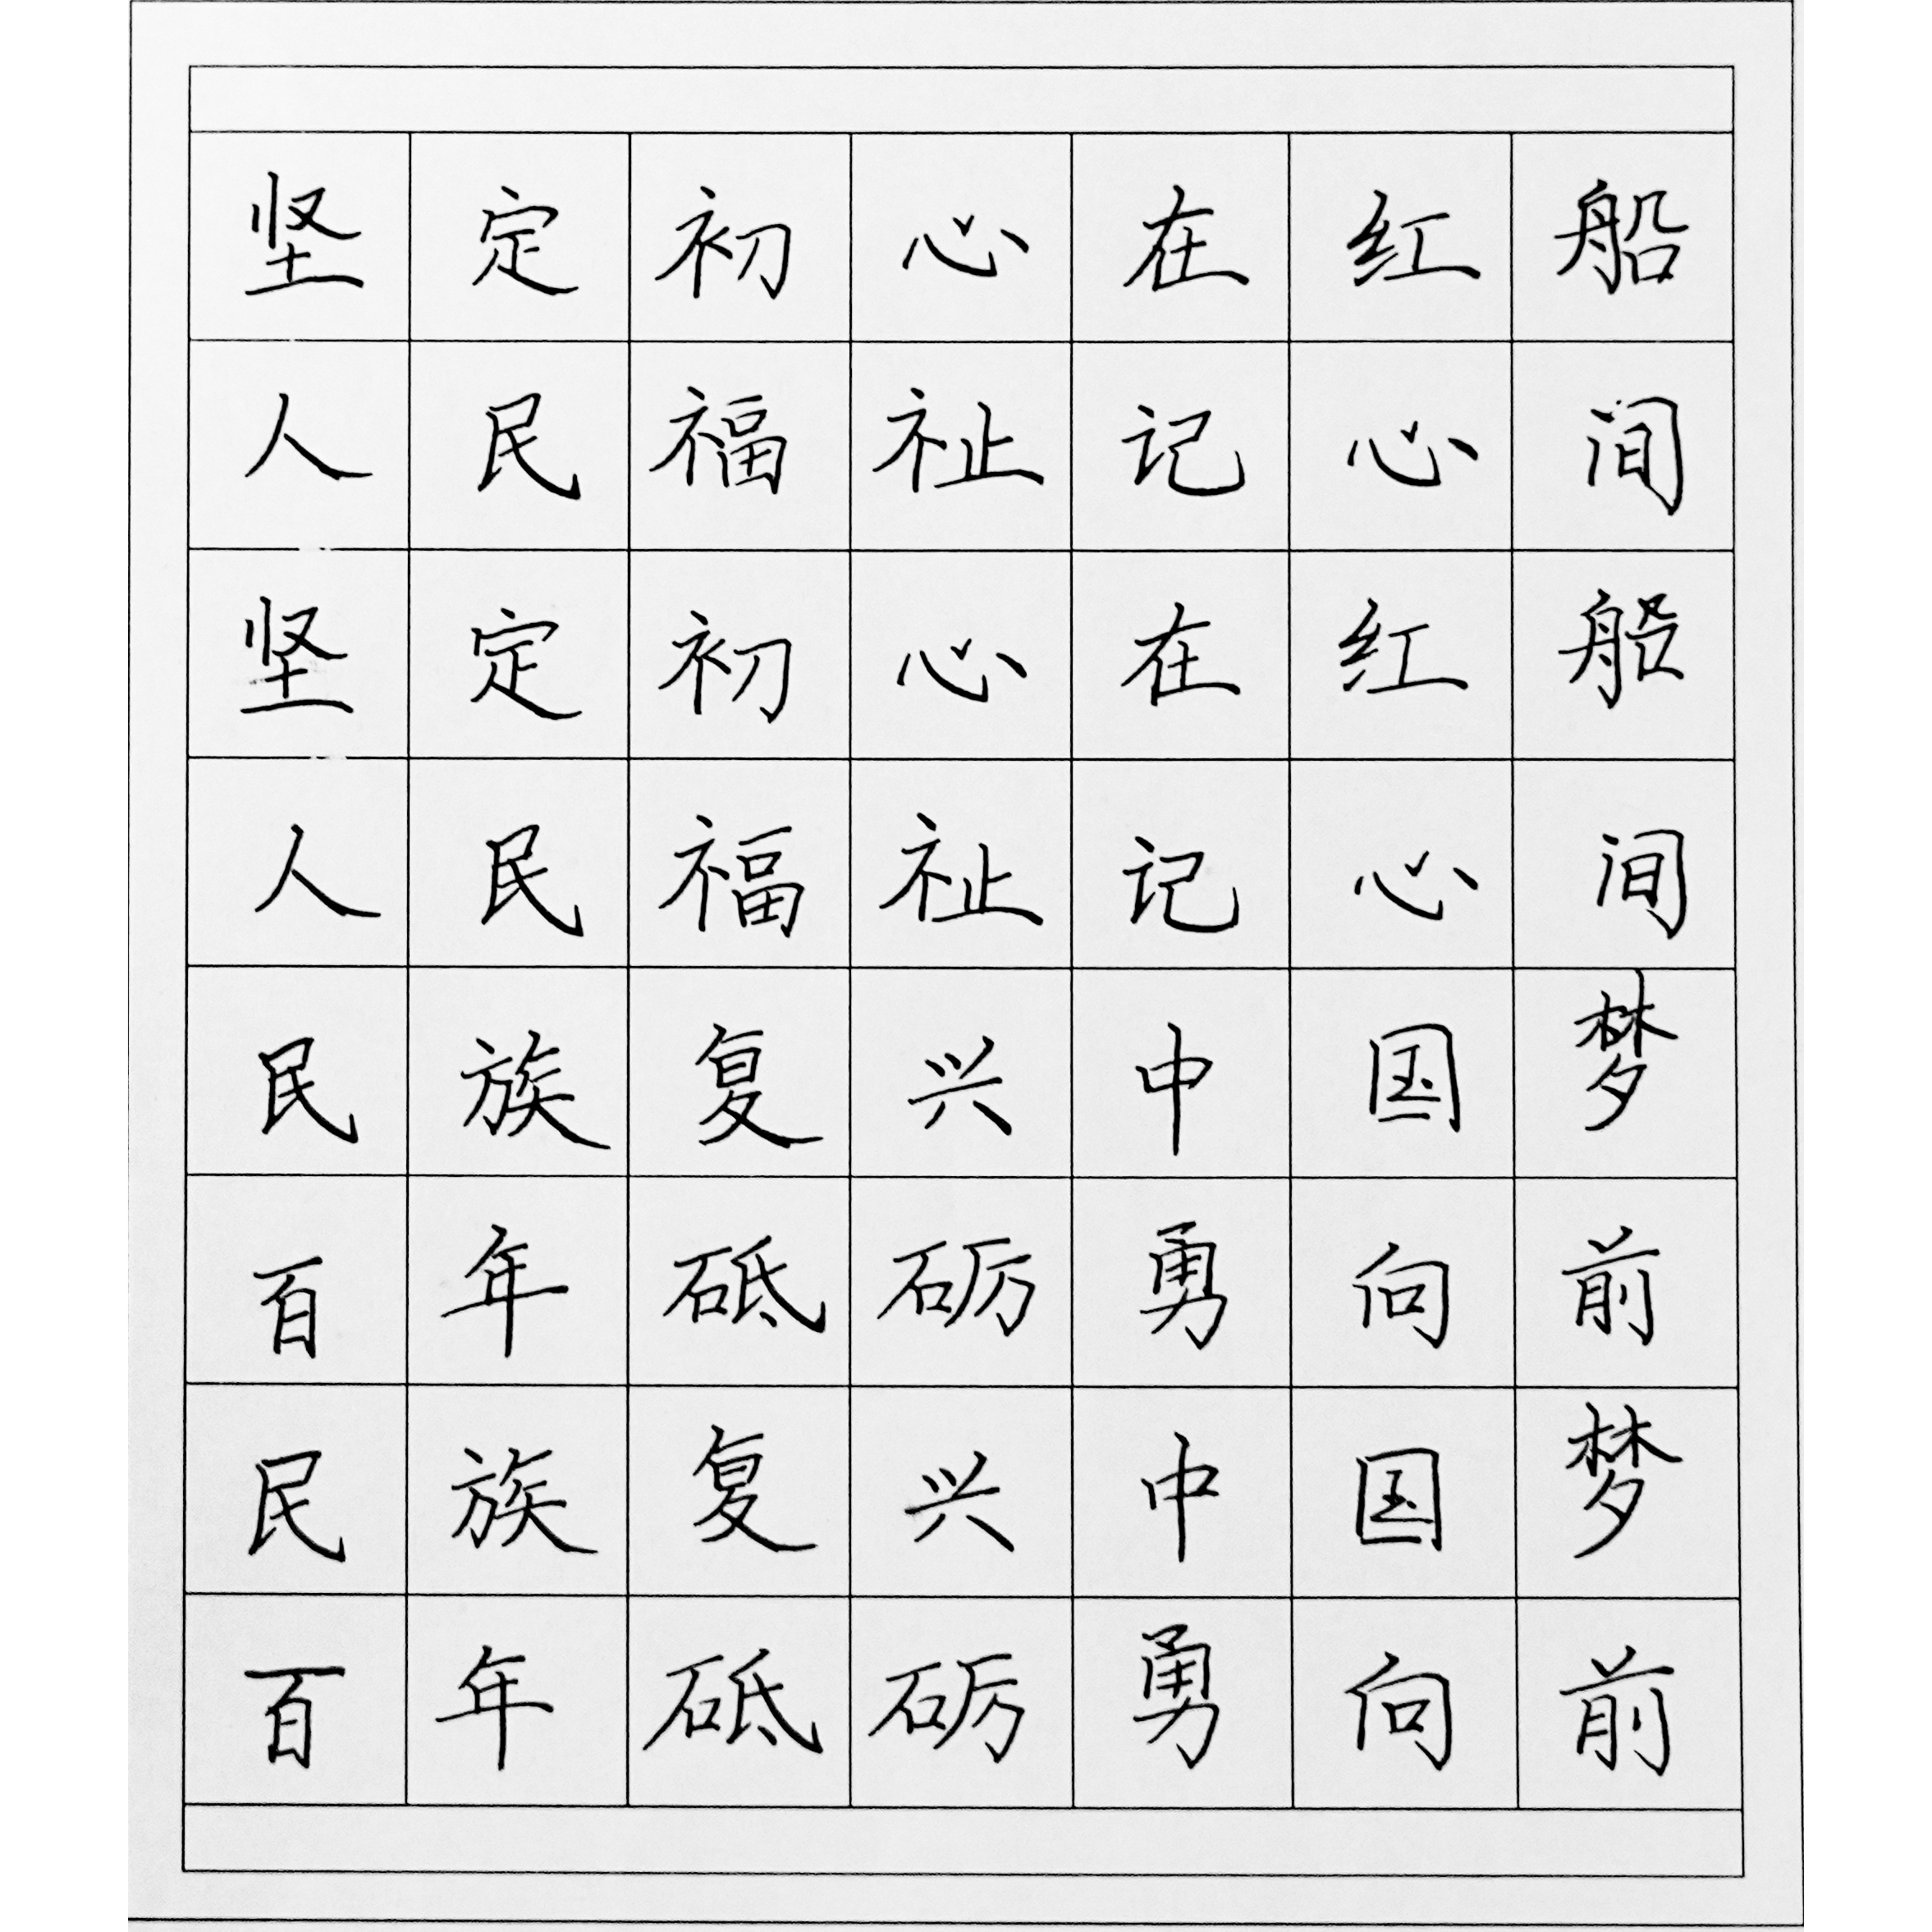 坚定初心在红船
人民福祉记心间
坚定初心在红船
人民福祉记心间
民族复兴中国梦
百年砥砺勇向前
民族复兴中国梦
百年砥砺勇向前